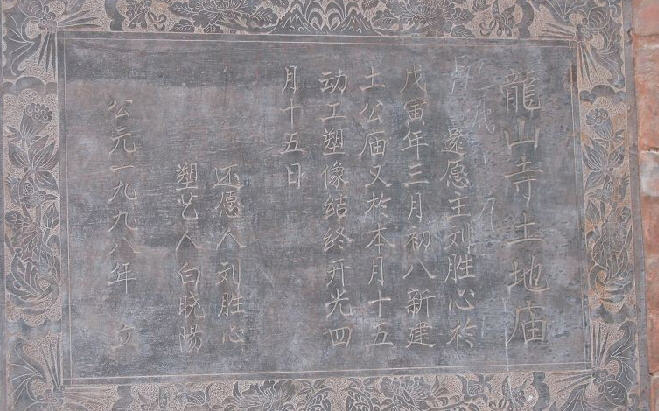 龍山寺土地庙
愿王刘胜心於
戊寅年三月初八新建
土公庙又於本月十五
动工塑像结终开光四
月十五日
还愿人刘胜心
塑艺人白晓阳
公元一九九八年 立